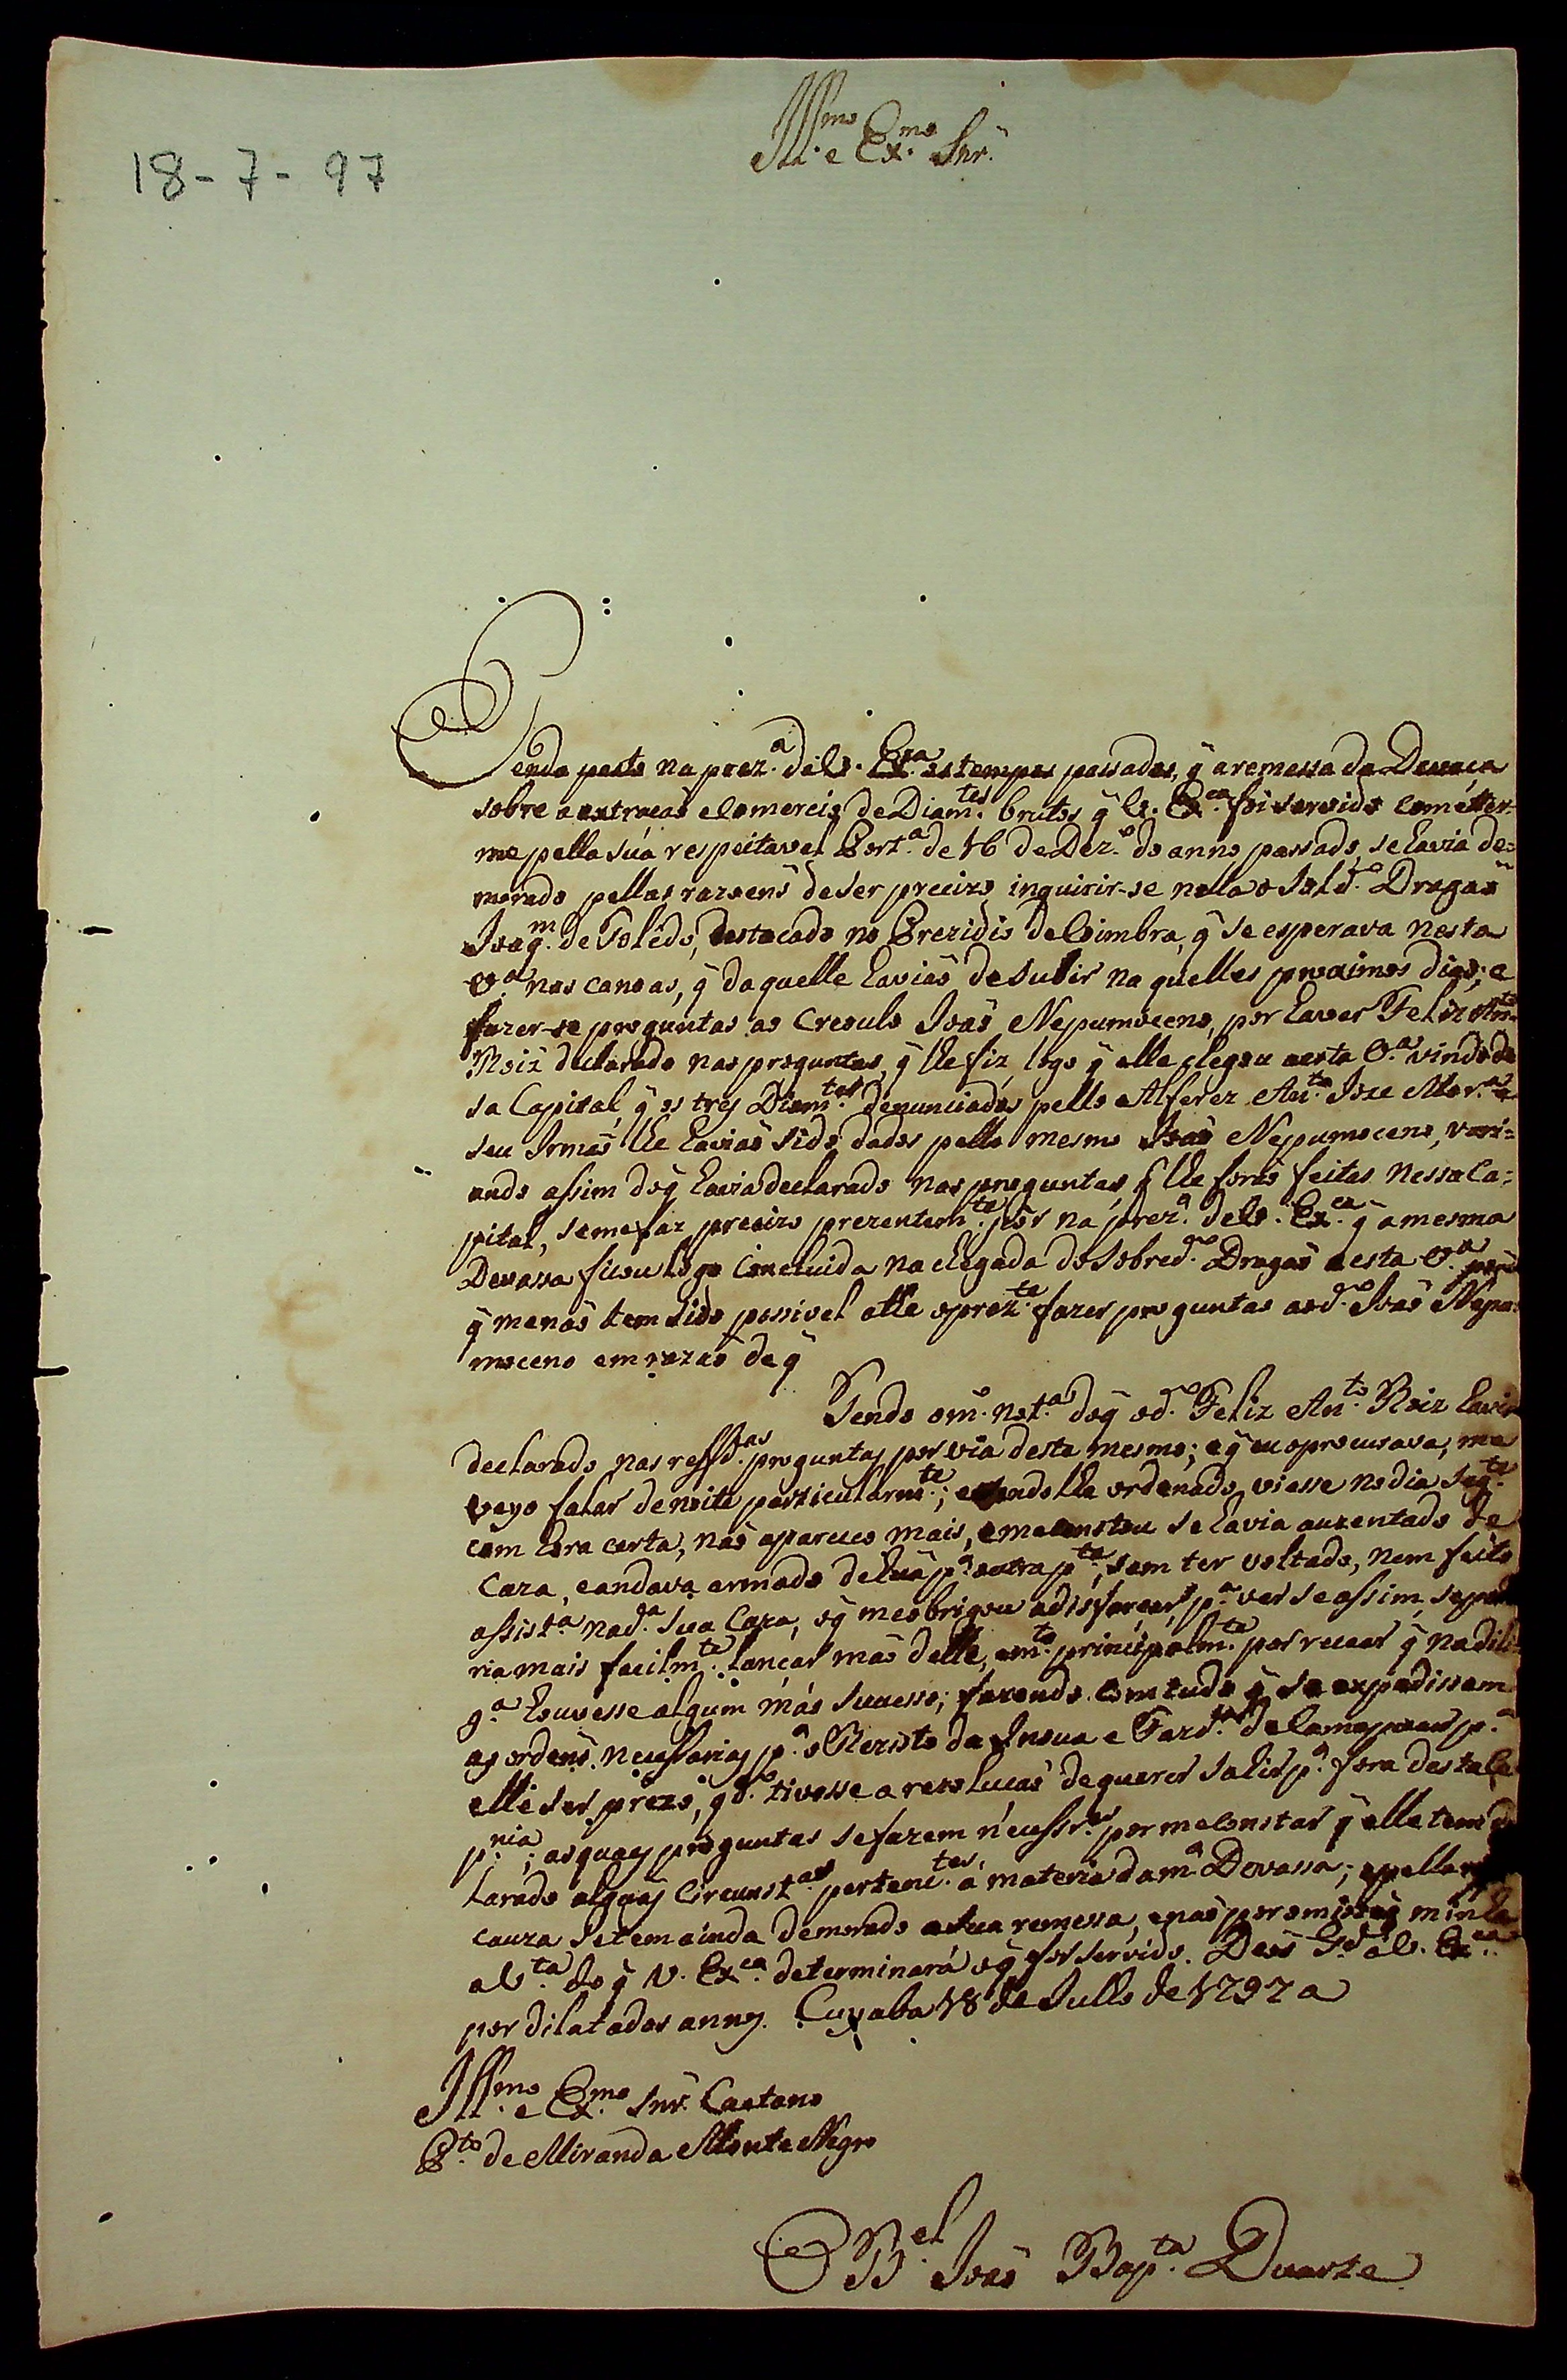 Ill.mo e Ex.mo Snr.
18-7-97
Tendo posto na prez.a de V. Ex.a os tempos passados, q̃ a remessa da Devaça
sobre a extracaõ e Comercio de Diam.tes brutos q̃ V. Ex.ca foi servido cométter-
me pella súa respeitavel Port.a de 16 de Dez.o do anno passado, se havia de=
morado pellas razoens de ser precizo inquirir-se nella o Sold.o Dragaõ
Joaq.m de Tolêdo, destacado no Prezidio de Coimbra, q̃ se esperava nesta
V.a nas canoas, q̃ daquelle haviaõ de subir naquelles proximos dias; e
fazer-se preguntas ao Creoulo Joaõ Nepumoceno, por haver Feliz An.to
Roiz declarado nas preguntas, q̃ lhe fiz, logo q̃ elle chegou a esta V.a vindo de
sa Capital, q̃ os trez Diam.tes denunciados pello Alferez An.to Joze
seu Irmaõ lhe haviaõ sido dados pello mesmo Joaõ Nepumoceno, vari=
ando assim do q̃ havia declarado nas preguntas, q̃ lhe foraõ feitas nessa Ca=
pital, se me faz precizo prezentem.te pôr na prez.a de V. Ex.ca q̃ a mesma
Devassa ficou logo Concluida na chegada do sobred.o Dragaõ a esta V.a porẽ
q̃ me naõ tem sido possivel athe o prez.te fazer preguntas ao d.o Joaõ Nepu=
moceno em razaõ de q̃
Tendo o m.o not.a do q̃ o d.o Feliz An.to Roiz havia
declarado nas reff.das preguntas por via deste mesmo; e q̃ eu o procurava, me
veyo falar de noite particularm.te; e lhe ordenado, viesse no dia seg.te
com hora certa, naõ apareceo mais, e me constou se havia auzentado de
Caza, e andava armado de huã p.a outra p.te, sem ter voltado, nem feito
assist.a na d.a sua Caza, o q̃ me obrigou a disfarçar, p.a ver se assim, se pode
ria mais facilm.te lançar maõ delle, e m.to principalm.te por recear q̃ na dili
g.a houvesse algum máo sucesso; fazendo com tudo q̃ se expedissem
as ordens necessarias p.a o Rezisto da Insua e Fazd.a de Camapuam p.a
elle ser prezo, q.do tivesse a rezolucaõ de querer sahir p.a fora desta Ca
p.nia; as quaes preguntas se fazem necessr.as por me constar q̃ elle tem de
larado algũas Circunst.as pertenc.tes á materia da m.a Devassa; e pella
cauza se tem ainda demorado a sua remessa, e naõ por omissaõ minha
a V.ta do q̃ V. Ex.ca determinará o q̃ for servido. Deos G.de a V. Ex.ca
por dilatados annos. Cuyaba 18 de Julho de 1797 a
Ill.mo e Ex.mo Snr. Caetano
P.to de Miranda Monte Negro
O B.el Joaõ Bap.ta Duarte